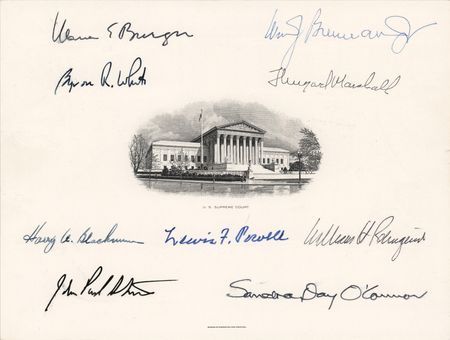 Warren E Burger
Wm J Brennan Jr
Byron R. White
Thurgood Marshall
U. S. SUPREME COURT
Harry A. Blackmun
Lewis F. Powell
William H Rehnquist
John Paul Stevens
Sandra Day O'Connor